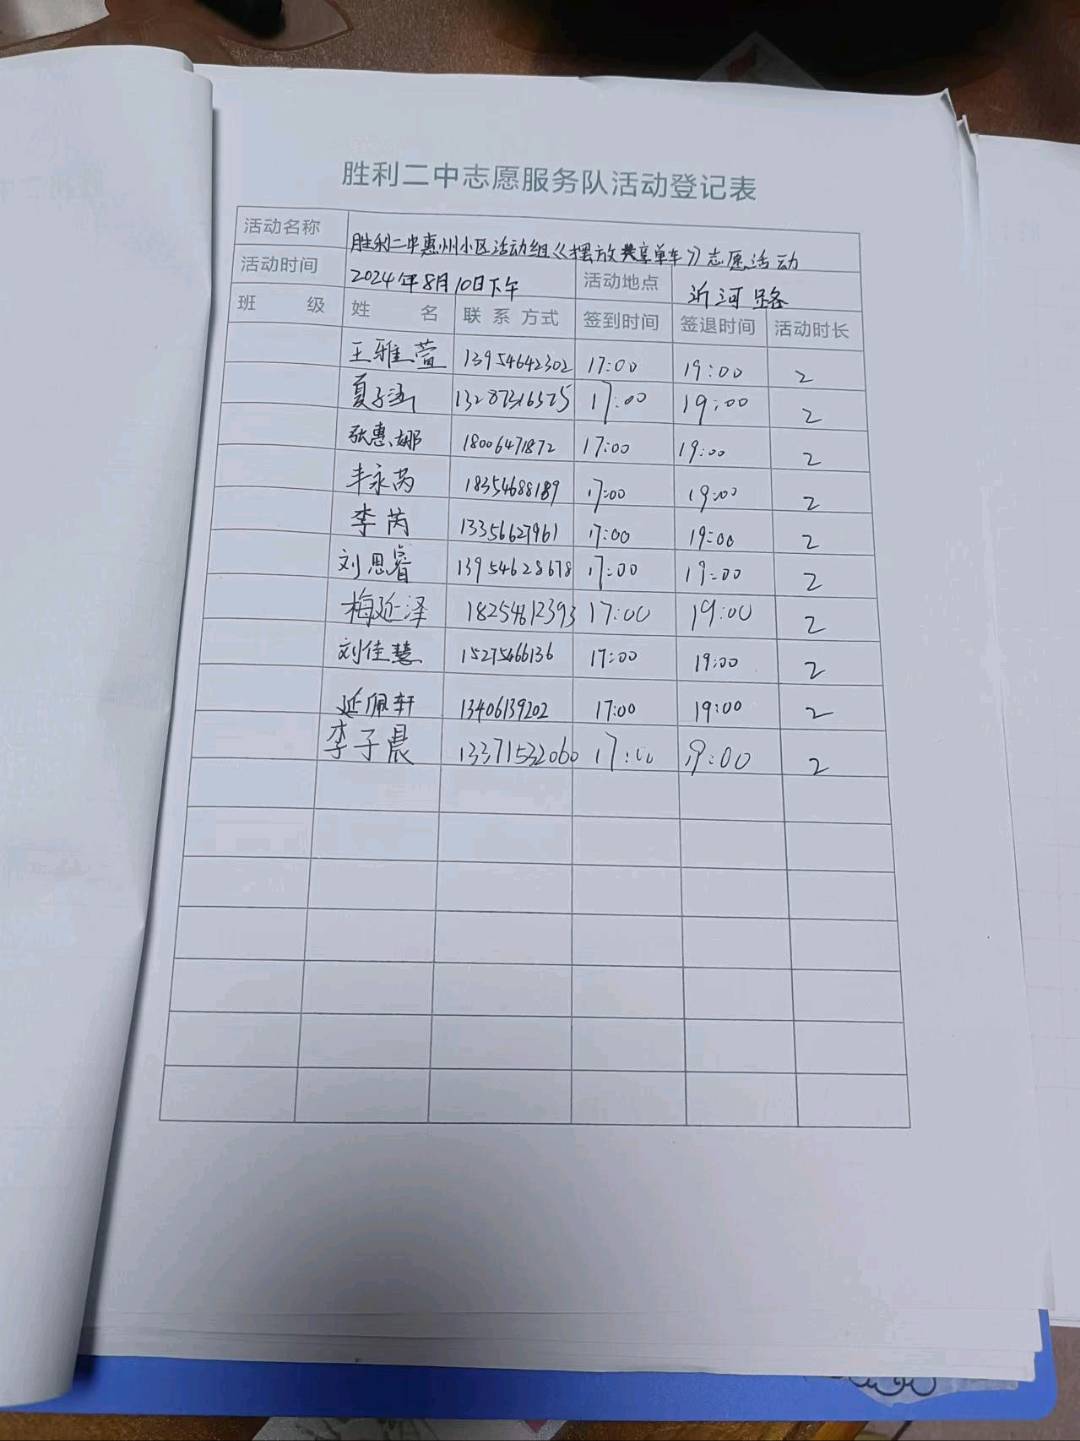 胜利二中志愿服务队活动登记表
活动名称 胜利二中惠州小区活动组《摆放共享单车》志愿活动
活动时间 2024年8月10日下午 活动地点 沂河路
班 级 姓 名 联 系 方式 签到时间 签退时间 活动时长
王雅萱 13954642302 17:00 19:00 2
夏子涵 13287316575 17:00 19:00 2
张惠娜 18006471872 17:00 19:00 2
丰永芮 18354688189 17:00 19:00 2
李芮 13356627961 17:00 19:00 2
刘思睿 13954628678 17:00 19:00 2
梅延泽 18254612393 17:00 19:00 2
刘佳慧 15275466136 17:00 19:00 2
延佩轩 13406139202 17:00 19:00 2
李子晨 13371532060 17:00 19:00 2